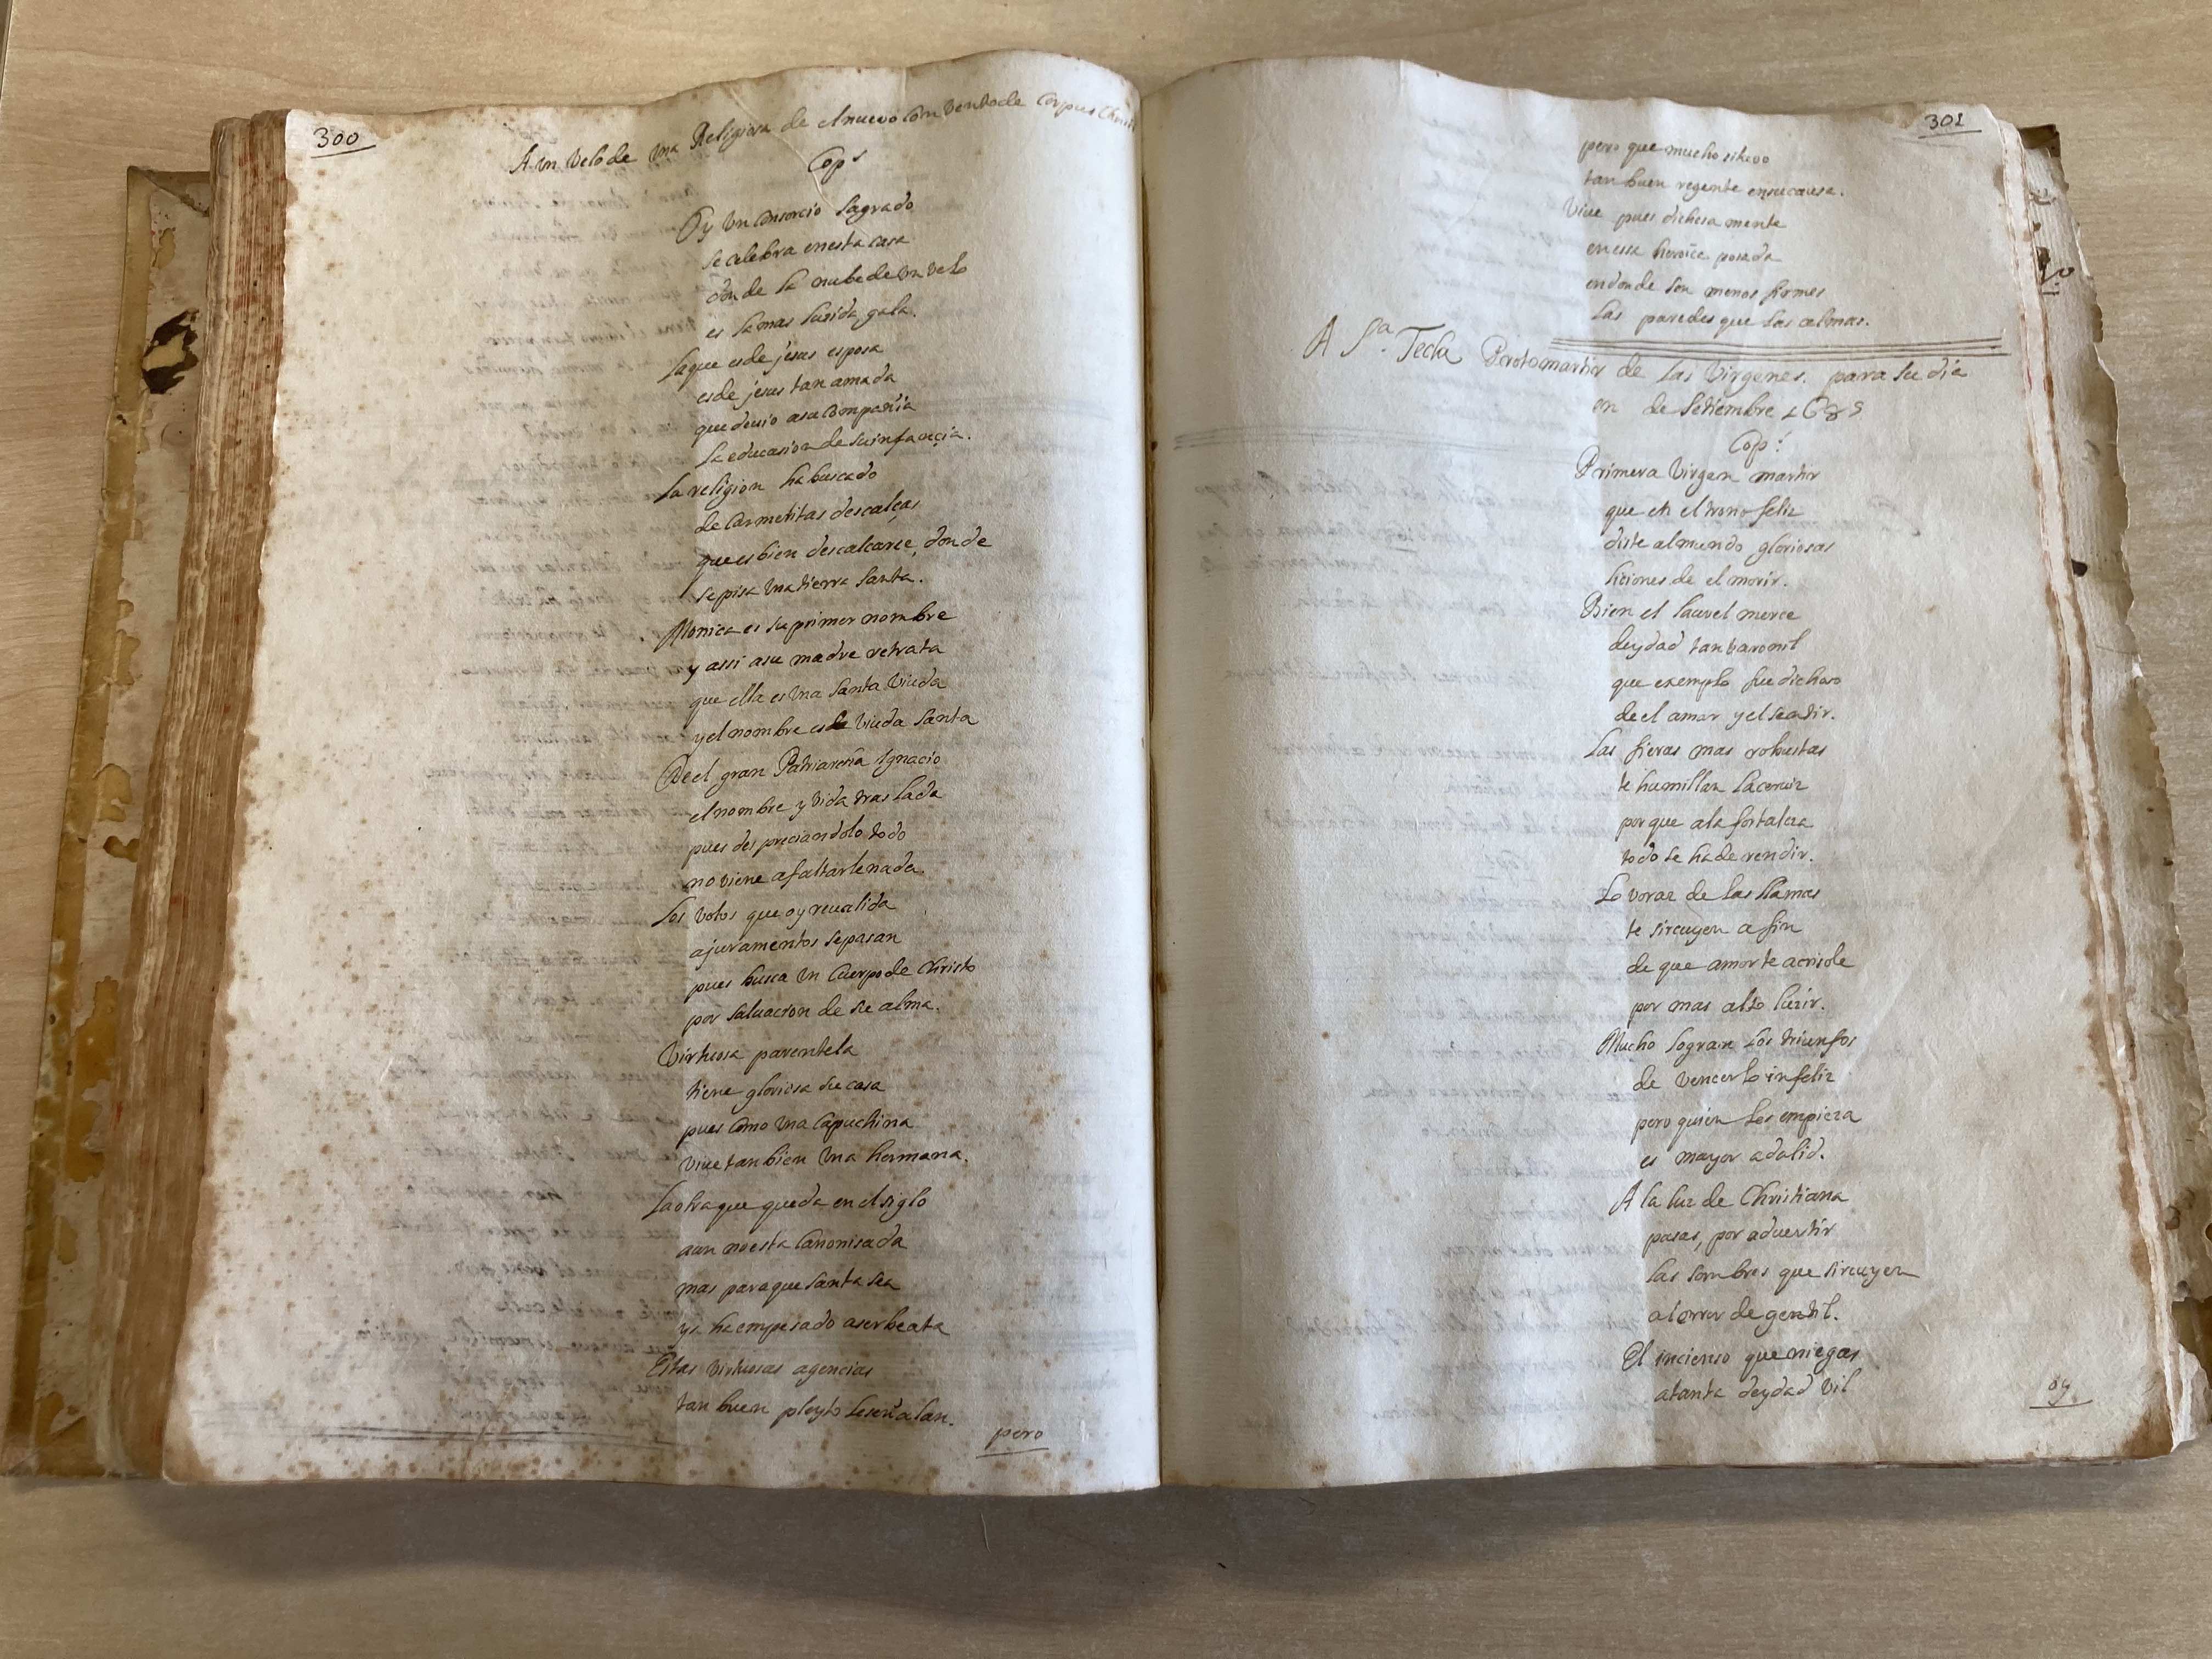 300
A un Velo de una Religiosa de el nuevo Convento de Corpus Christi
Cop.s
Oy un Consorcio Sagrado
se celebra en esta casa
donde la nube de un velo
es la mas lusida gala.
La que es de jesus esposa
es de jesus tan amada
que deuio a su Compañia
la educasion de su infançia.
La religion ha buscado
de Carmelitas descalças
que es bien descalcarse, donde
se pisa una tierra Santa.
Monica es su primer nombre
y assi a su madre retrata
que ella es una Santa Viuda
y el nombre es de Viuda Santa
De el gran Patriarcha Ignacio
el nombre y vida traslada
pues despreciandolo todo
no viene a faltarle nada.
Los Votos que oy reualida
a juramentos se pasan
pues busca un Cuerpo de Christo
por saluacion de su alma.
Virtuosa parentela
tiene gloriosa su casa
pues como una Capuchina
viue tanbien una hermana.
La otra que queda en el siglo
aun no esta Canonisada
mas para que Santa sea
ya ha empesado a ser beata
Estas virtuosas agencias
tan buen pleyto le señalan.
pero
301
pero que mucho si tuvo
tan buen regente en su causa.
Viue pues dichosa mente
en essa heroice posada
en donde son menos firmes
las paredes que las almas.
A S.a Tecla Protomartir de las Virgenes. para su dia
en de Setiembre
Cop.s
Primera Virgen martir
que en el trono feliz
diste al mundo gloriosas
liciones de el morir.
Bien el laurel merce
deydad tan varonil
que exemplo fue dichoso
de el amar y el sentir.
Las fieras mas robustas
te humillan la ceruiz
por que a la fortaleza
todo se ha de rendir.
Lo voraz de las llamas
te sircuyen a fin
de que amor te acrisole
por mas alto luzir.
Mucho logran los triunfos
de vencer lo infeliz
pero quien los empieza
es mayor adalid.
A la luz de Christiana
pasas, por aduertir
las sombras que sircuyen
al error de gentil.
El incienso que niegas
a tanta deydad vil
oy